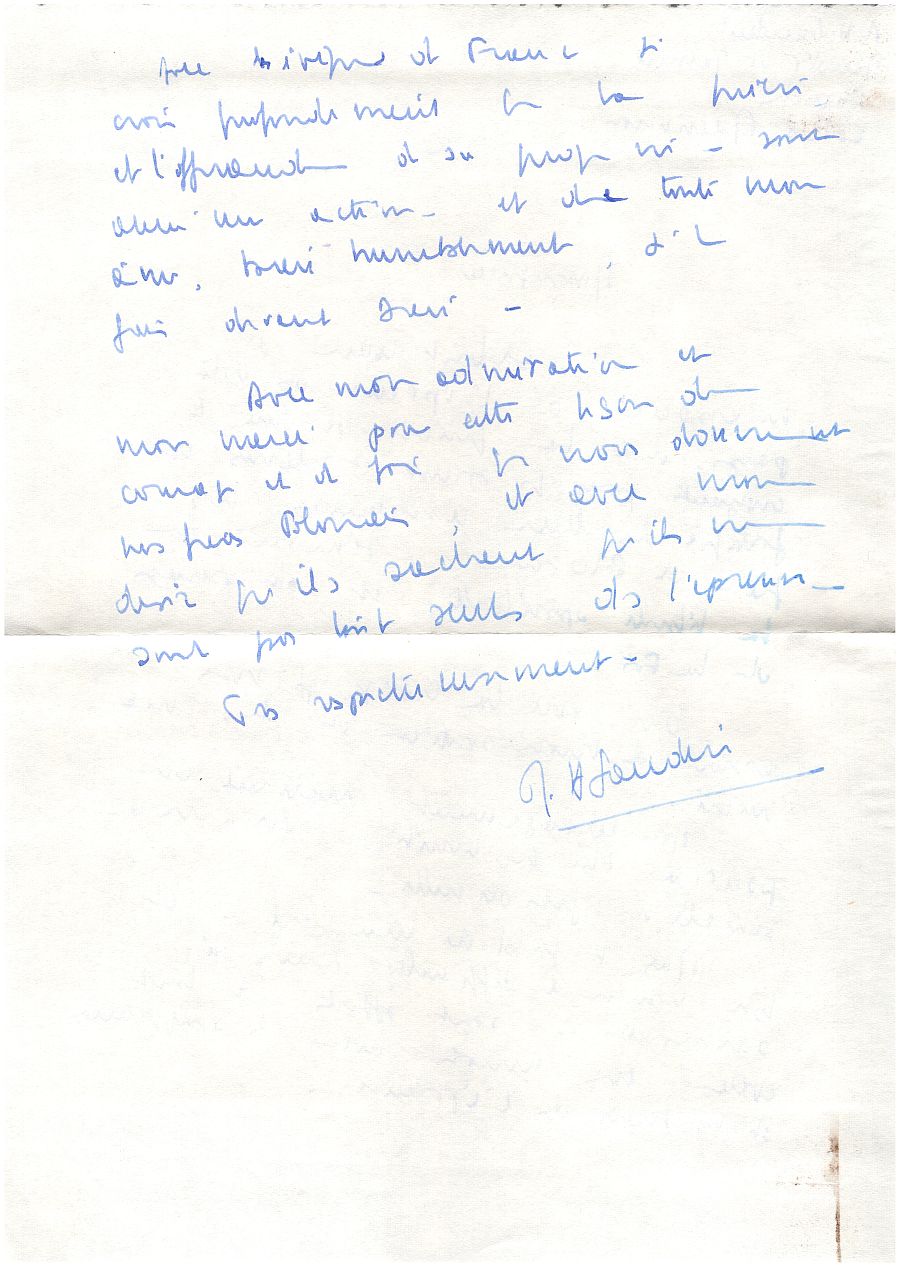 avec les évêques de France. Je
crois profondément que la prière
et l'offrande de sa propre vie - sont
aussi une action - et de toute mon
âme, humblement, s'il
fais devant
Avec mon admiration et
mon merci pour cette leçon de
courage et de foi que nous donnent
nos frères Polonais, et avec mon
désir qu'ils sachent qu'ils ne
sont pas tout seuls ds l'épreuve
Très respectueusement -